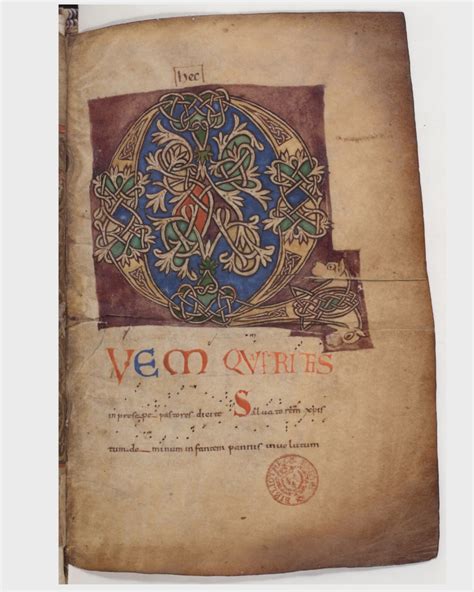 hec
Q
VEM QVERITIS
in presepe pastores dicite Saluatorem xpis
tum do minum infantem pannis inuolutum